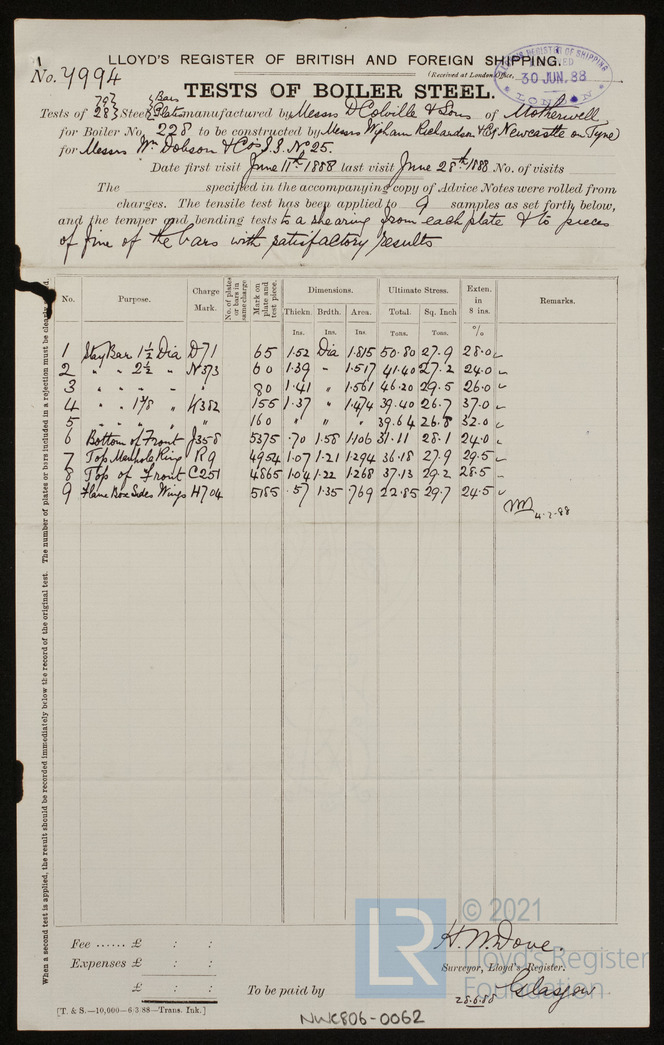 LLOYD'S REGISTER OF BRITISH AND FOREIGN SHIPPING.
No. 4994
(Received at London Office,
LLOYD'S REGISTER OF SHIPPING
30 JUN. 88
LONDON
TESTS OF BOILER STEEL.
Tests of 79 28 Steel Bars Plates manufactured by Messrs D Colville & Sons of Motherwell
for Boiler No. 228 to be constructed by Messrs Wigham Richardson & Co Newcastle on Tyne
for Messrs Wm Dobson & Co's S.S. No 25.
Date first visit June 11th 1888 last visit June 28th 1888 No. of visits
The specified in the accompanying copy of Advice Notes were rolled from
charges. The tensile test has been applied to 9 samples as set forth below,
and the temper and bending tests to a shearing from each plate & to pieces
of five of the bars with satisfactory results
No. Purpose. Charge Mark. No. of plates or bars in same charge Mark on plate and test piece. Dimensions. Ultimate Stress. Exten. in 8 ins. Remarks.
Thickn. Brdth. Area. Total. Sq. Inch
Ins. Ins. Ins. Tons. Tons. %
1 Stay Bar 1½ Dia D71 65 1.52 Dia 1.815 50.80 27.9 28.0
2 " " 2½ " N373 60 1.39 " 1.517 41.40 27.2 24.0
3 " " " " " 80 1.41 " 1.561 46.20 29.5 26.0
4 " " 1⅜ " K382 155 1.37 " 1.474 39.40 26.7 37.0
5 " " " " " 160 " " " 39.64 26.8 32.0
6 Bottom of Front J358 5375 .70 1.58 1.106 31.11 28.1 24.0
7 Top Manhole Ring R9 4954 1.07 1.21 1.294 36.18 27.9 29.5
8 Top of Front C251 4865 1.04 1.22 1.268 37.13 29.2 28.5
9 Flame Box Sides Wings H704 5185 .57 1.35 .769 22.85 29.7 24.5
4.7.88
When a second test is applied, the result should be recorded immediately below the record of the original test. The number of plates or bars included in a rejection must be clearly
Fee ...... £ : :
Expenses £ : :
£ : :
To be paid by
H. W. Dove.
Surveyor, Lloyd's Register.
28.6.88 Glasgow
[T. & S.—10,000—6/3/88—Trans. Ink.]
NWC806-0062
LR
© 2021
Lloyd's Register
Foundation